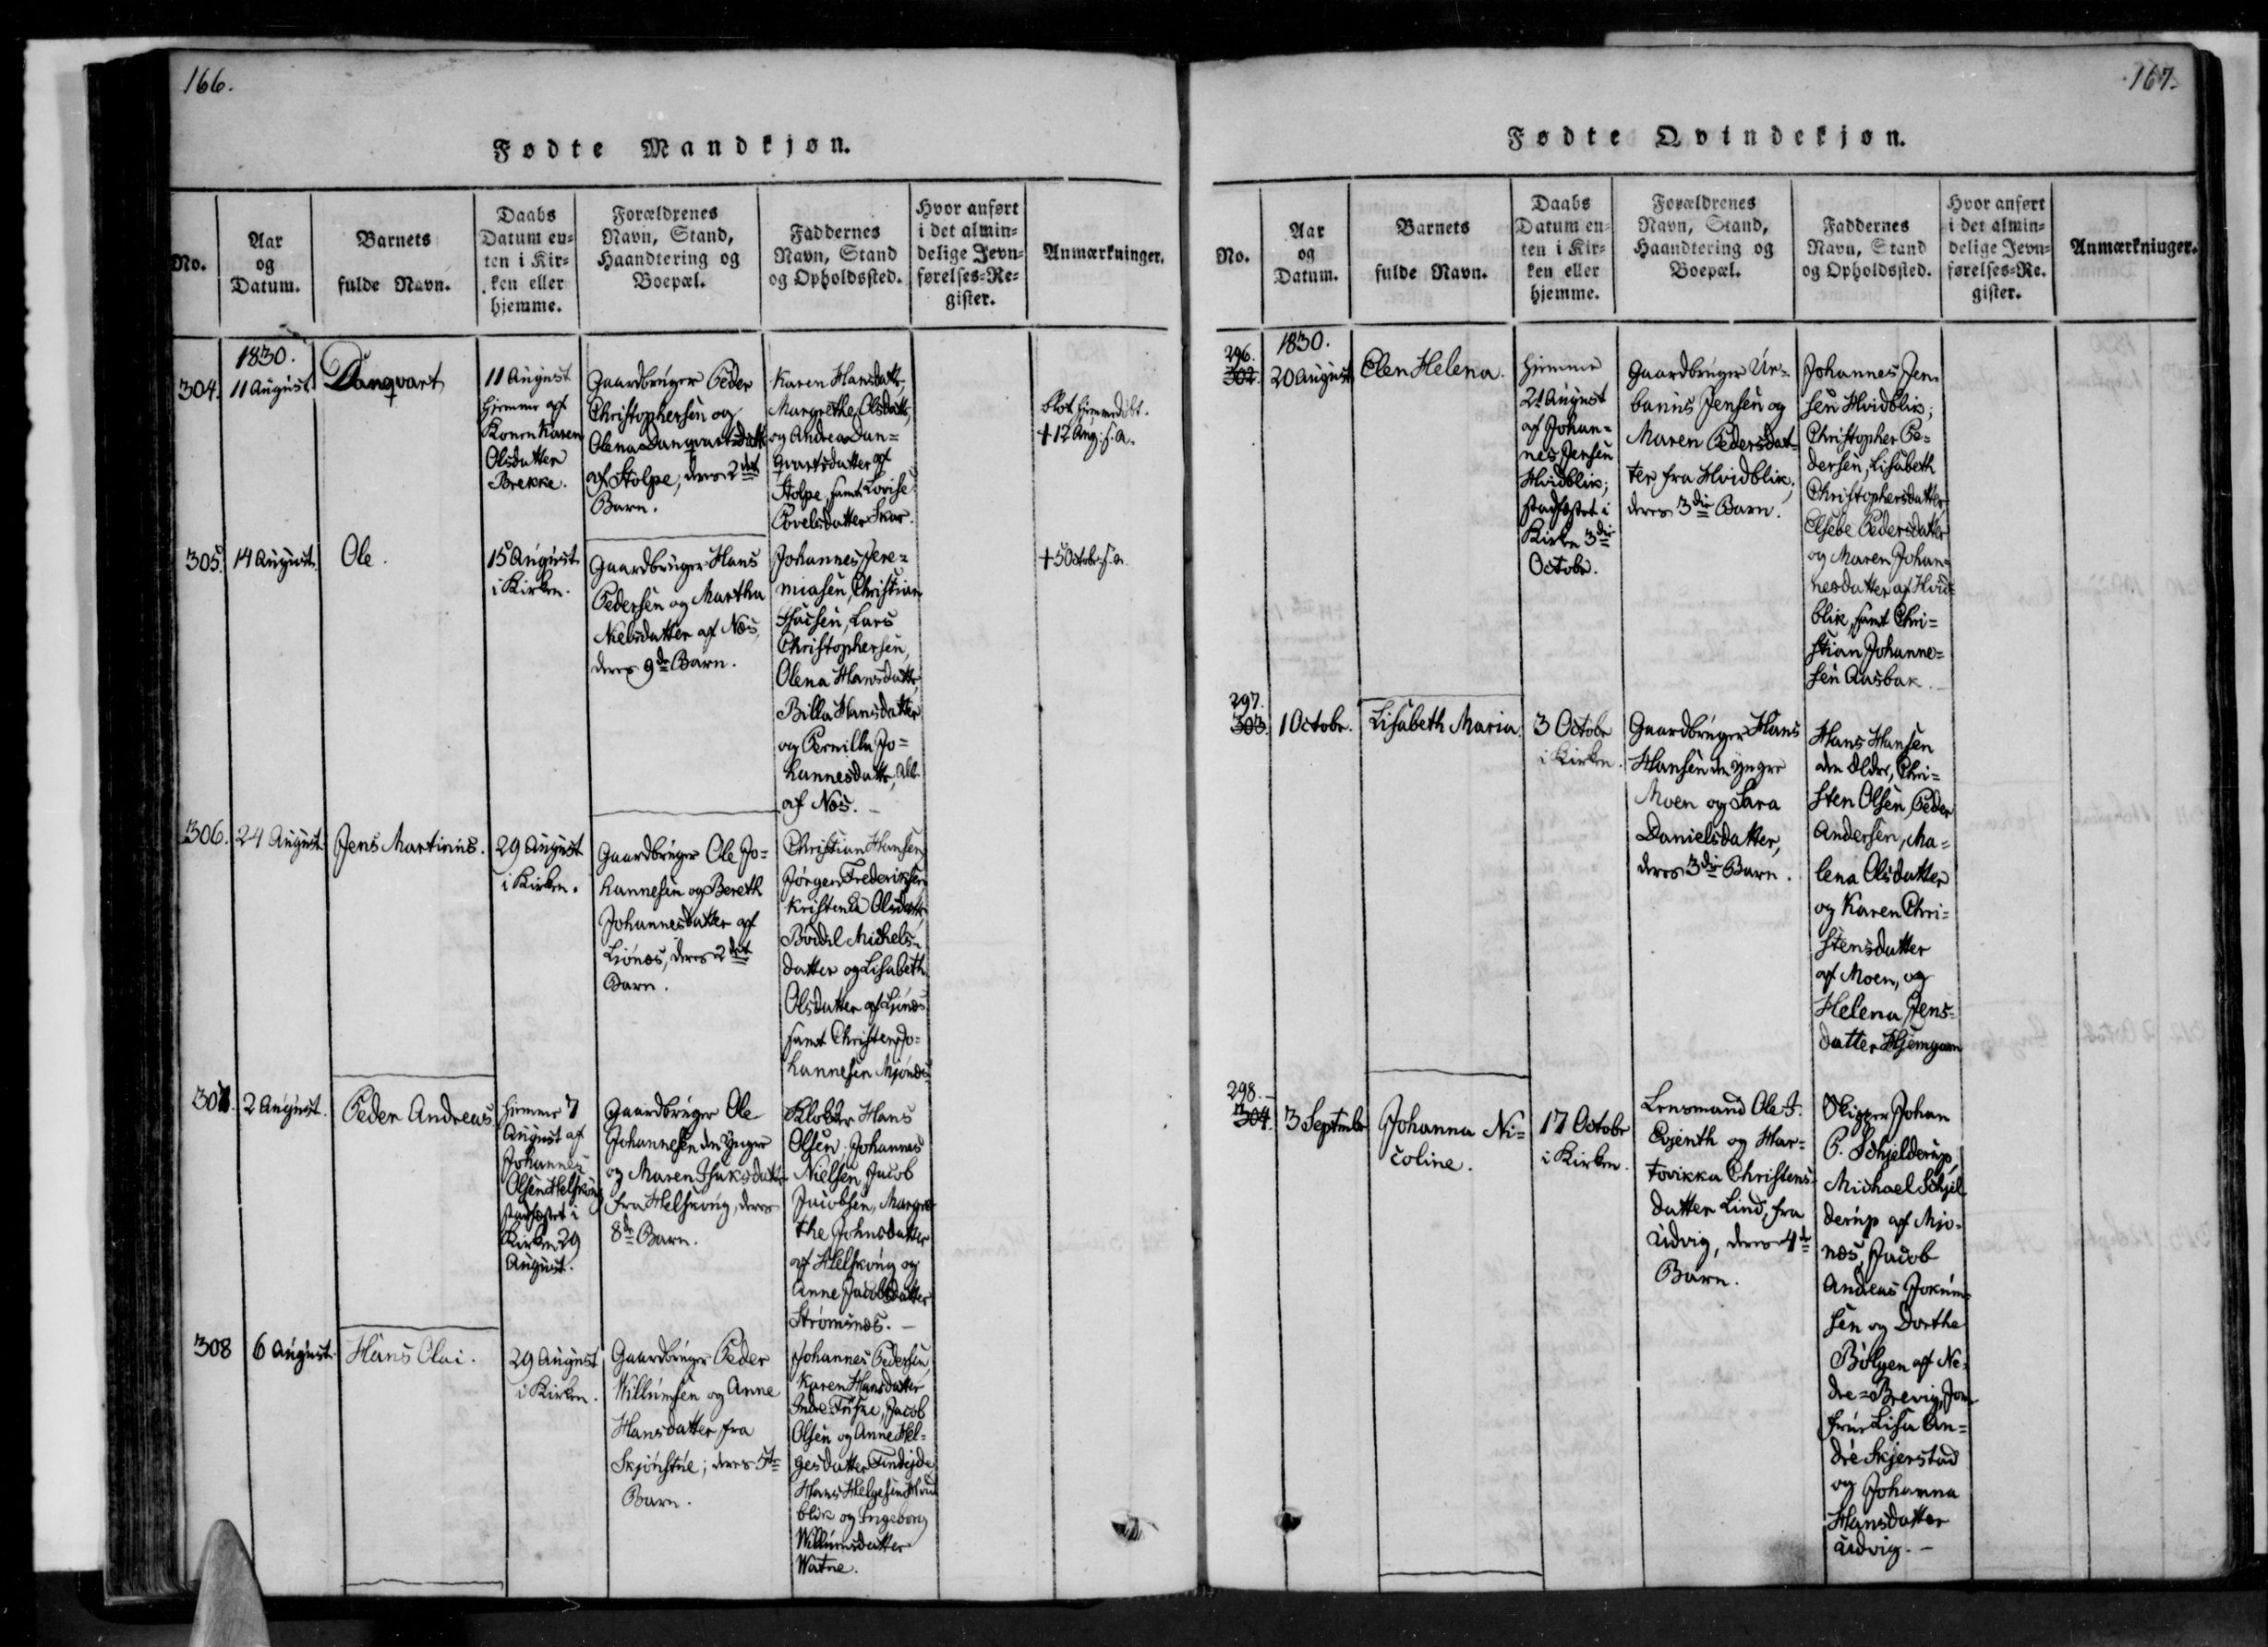 166.
Fødte Mandkjøn.
No.
Aar
og
Datum.
Barnets
fulde Navn.
Daabs
Datum en-
ten i Kir-
ken eller
hjemme.
Forældrenes
Navn, Stand,
Haandtering og
Boepæl.
Faddernes
Navn, Stand
og Opholdssted.
Hvor anført
i det almin-
delige Jevn-
førelses-Re-
gister.
Anmærkninger.
1830.
304.
11 August
Danqvart
11 August
hjemme af
Konen Karen
Olsdatter
Brekke.
Gaardbruger Peder
Christophersen og
Olena Danqvartsdatt
af Stolpe, deres 2det
Barn.
Karen Hansdattr,
Margrethe Olsdattr,
og Andrea Dan=
qvartsdatter af
Stolpe, samt Lovise
Povelsdatter Skar.
blot hjemmedøbt.
+ 12 Aug: s. a.
305.
14 August.
Ole.
15 August
i Kirken.
Gaardbruger Hans
Pedersen og Martha
Nielsdatter af Næs,
deres 9de Barn.
Johannes Jere=
miasen, Christian
Isacsen, Lars
Christophersen,
Olena Hansdattr,
Billa Hansdatter
og Pernilla Jo=
hannesdattr, alle
af Næs.
+ 5 Octobr. s. a.
306.
24 August
Jens Martinus.
29 August
i Kirken.
Gaardbruger Ole Jo=
hannesen og Bereth
Johannesdatter af
Liónæs, deres 2det
Barn.
Christian Hansen,
Jørgen Frederiksen
Kristenza Olsdattr,
Bodil Michels=
datter og Lisabeth
Olsdatter af Ljónæs
samt Christen Jo=
hannesen Mjónæs.
307.
2 August.
Peder Andreas.
hjemme 7
August af
Johannes
Olsen Helskóng
stadfæstet i
Kirken 29
August.
Gaardbruger Ole
Johannesen den Yngre
og Maren Isaksdatter
fra Helskóng, deres
8de Barn.
Klokker Hans
Olsen, Johannes
Nielsen, Jacob
Jacobsen, Margre
the Johnsdatter
af Helskóng og
Anne Jacobsdatter
Strómsnæs.
308
6 August.
Hans Olai.
29 August
i Kirken.
Gaardbruger Peder
Willumsen og Anne
Hansdatter fra
Skjónstue; deres 5te
Barn.
Johannes Pedersen,
Karen Hansdatter
Indre Fuske, Jacob
Olsen og Anne Hel=
gesdatter Findejde,
Hans Helgesen Hvid
blik og Ingeborg
Willumsdatter
Watne.
167.
Fødte Qvindekjøn.
No.
Aar
og
Datum.
Barnets
fulde Navn.
Daabs
Datum en-
ten i Kir-
ken eller
hjemme.
Forældrenes
Navn, Stand,
Haandtering og
Boepæl.
Faddernes
Navn, Stand
og Opholdssted.
Hvor anført
i det almin-
delige Jevn-
førelses-Re-
gister.
Anmærkninger.
1830.
296.
302.
20 August
Elen Helena.
hjemme
21 August
af Johan=
nes Jensen
Hvidblik;
stadfæstet i
Kirken 3die
Octobr.
Gaardbruger Ur=
banus Jensen og
Maren Pedersdat=
ter fra Hvidblik,
deres 3die Barn.
Johannes Jen
sen Hvidblik;
Christopher Pe=
dersen, Lisabeth
Christophersdatter
Elsebe Pedersdatter
og Maren Johan=
nesdatter af Hvid=
blik, samt Chri=
stian Johanne=
sen Aasbak.
297.
303.
1 Octobr.
Lisabeth Maria.
3 Octobr
i Kirken.
Gaardbruger Hans
Hansen den Yngre
Moen og Sara
Danielsdatter,
deres 3die Barn.
Hans Hansen
den Ældre, Chri=
sten Olsen, Peder
Andersen, Ma=
lena Olsdatter
og Karen Chri=
stensdatter
af Moen, og
Helena Jens=
datter Hjemgam
298.
304.
3 Septembr
Johanna Ni=
coline.
17 Octobr
i Kirken.
Lensmand Ole J.
Evjenth og Har=
tvikka Christens=
datter Lind, fra
Udvig, deres 4de
Barn.
Skipper Johan
P. Schjelderup,
Michael Schjel
derup af Mjó=
næs, Jacob
Andreas Jokum=
sen og Dorthe
Bólgen af Ne=
dre=Brevig, Jom
frue Lisa An=
dré Skjerstad
og Johanna
Hansdatter
Udvig.